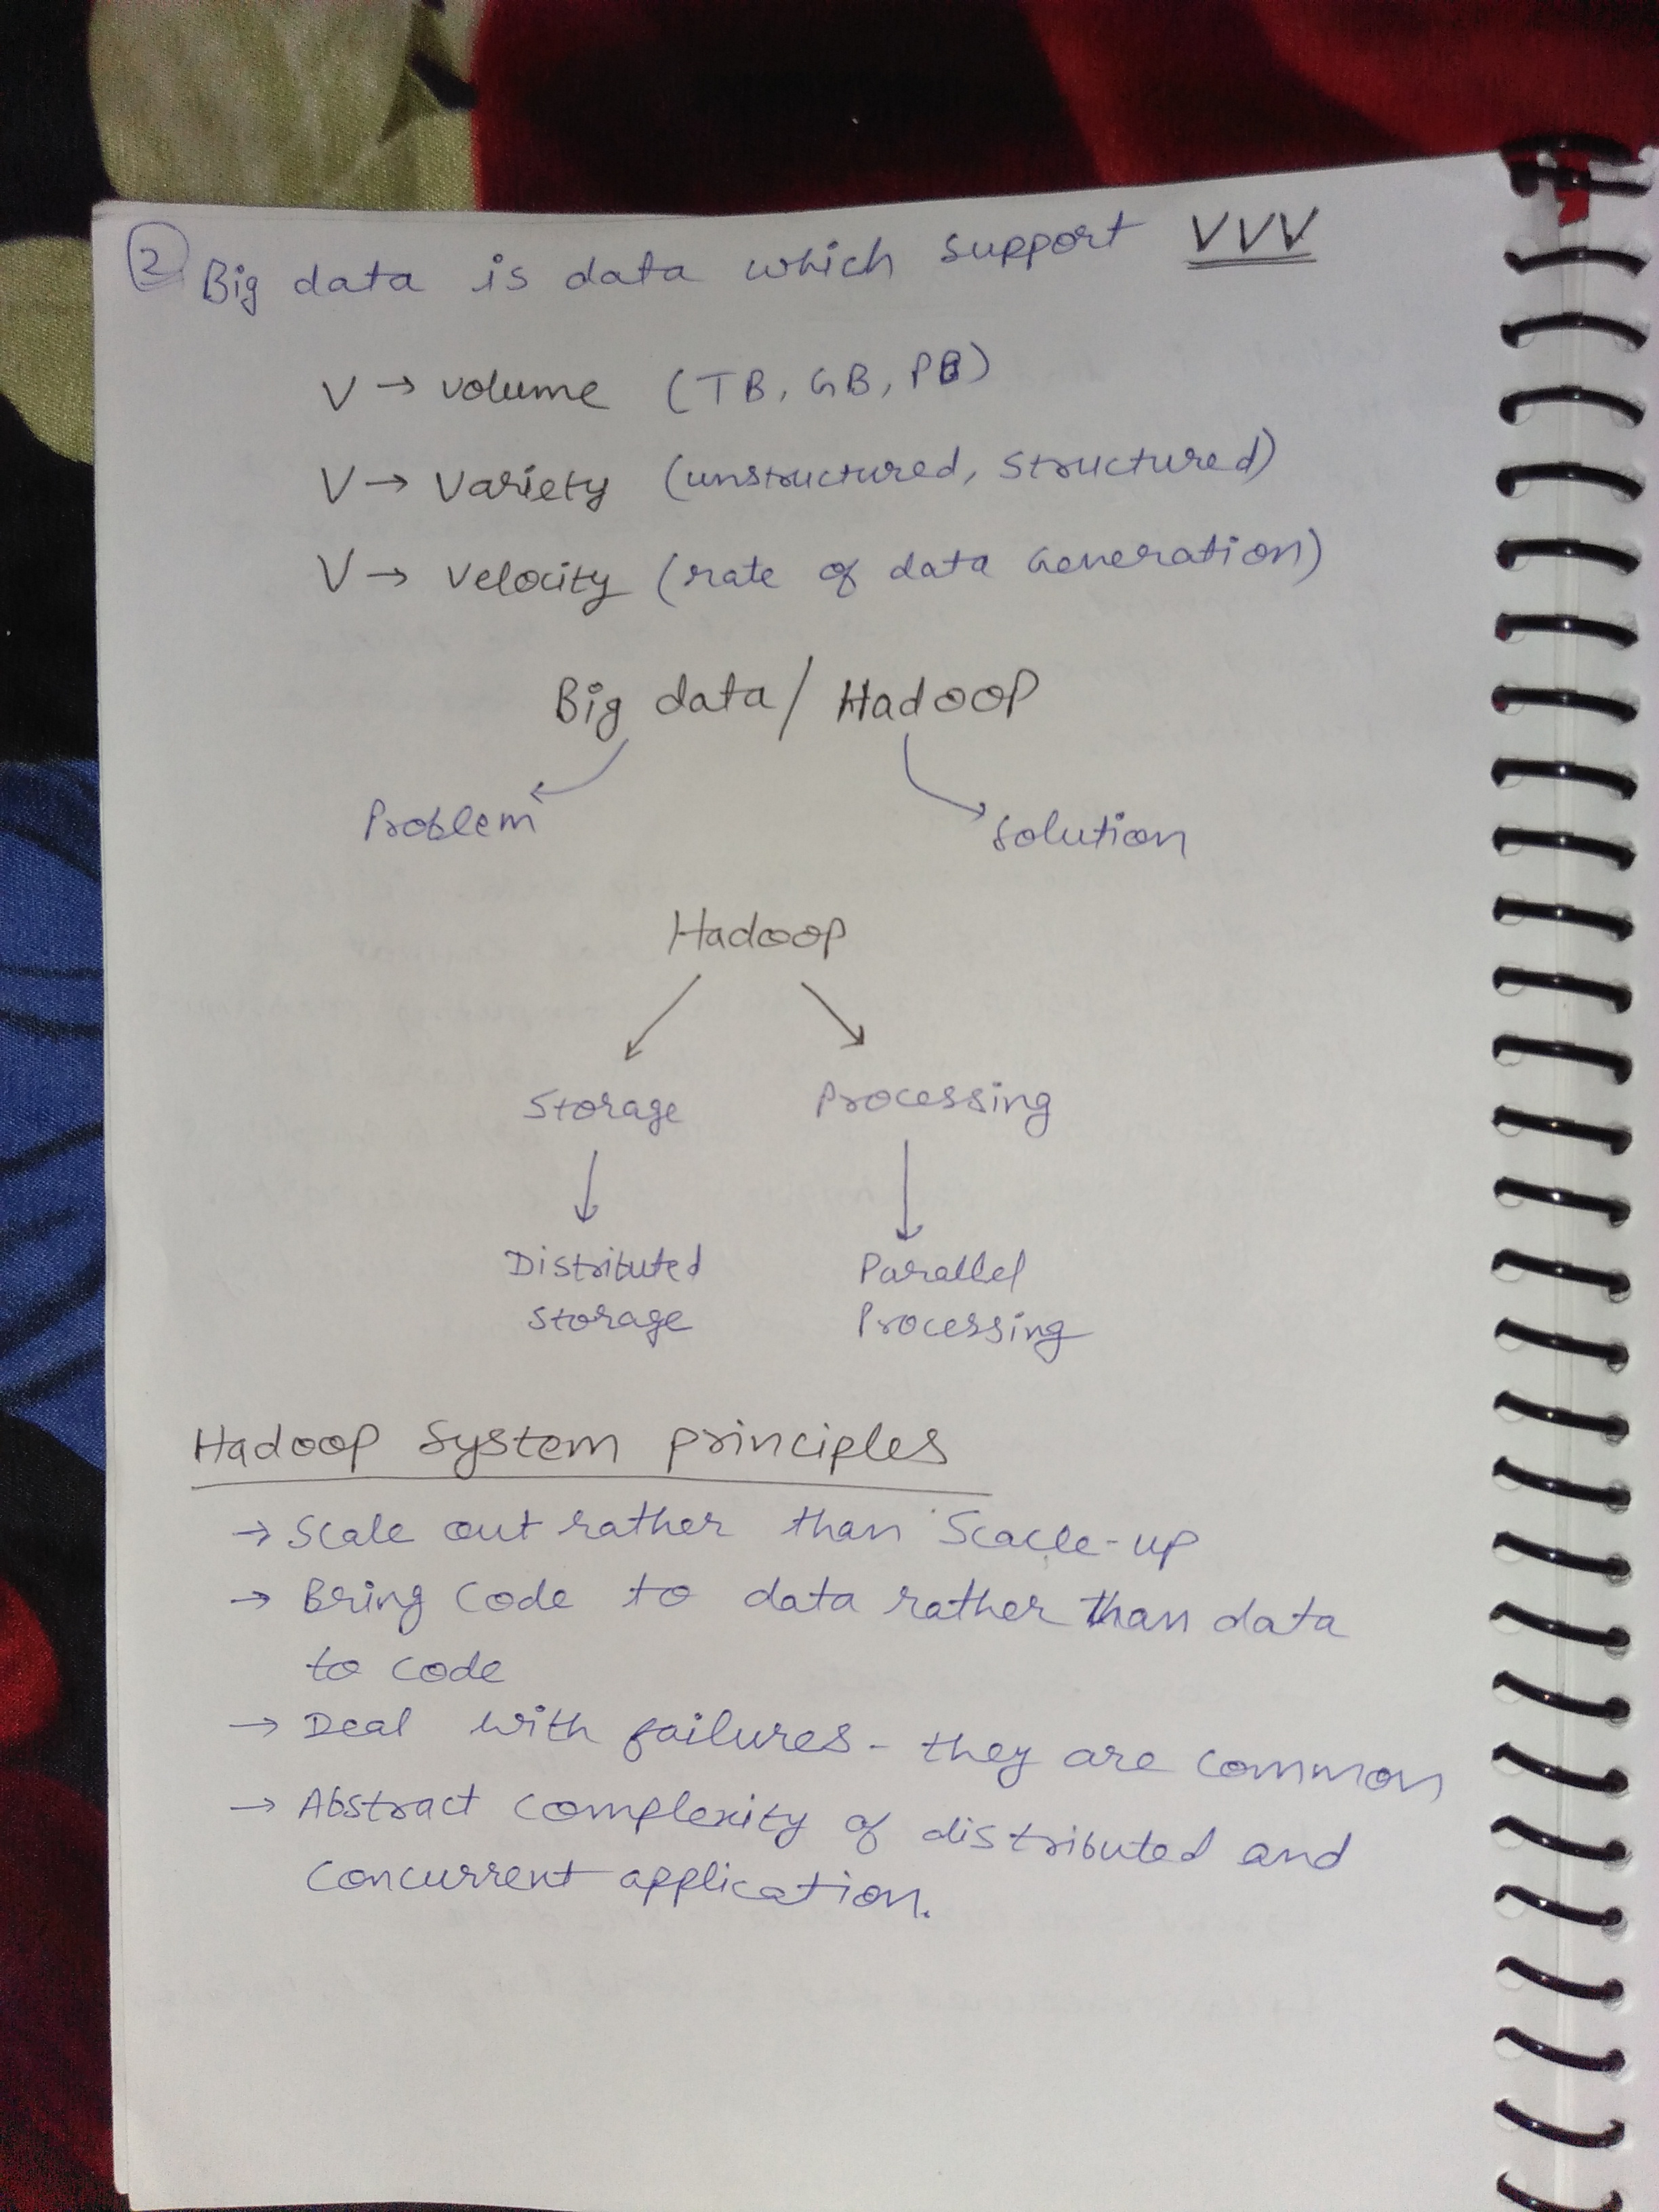 ② Big data is data which support VVV
V → volume (TB, GB, PB)
V → Variety (unstructured, structured)
V → Velocity (rate of data Generation)
Big data / Hadoop
Problem Solution
Hadoop
Storage Processing
Distributed Parallel
Storage Processing
Hadoop System principles
→ Scale out rather than Scacle-up
→ Bring Code to data rather than data
to code
→ Deal with failures - they are common
→ Abstract complexity of distributed and
concurrent application.